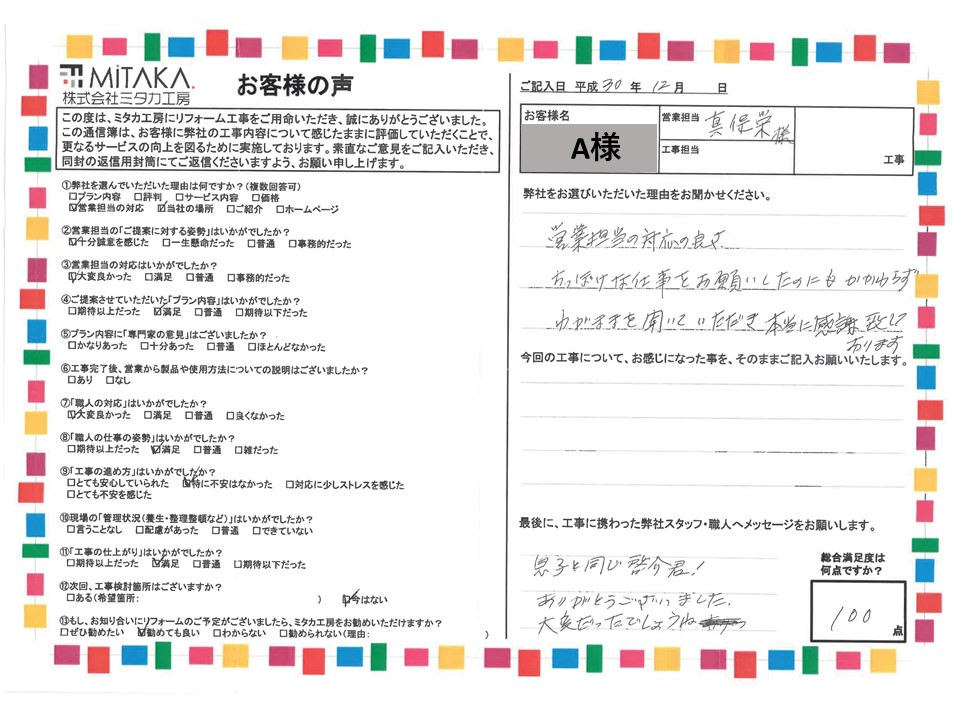 MiTAKA.
株式会社ミタカ工房
お客様の声
この度は、ミタカ工房にリフォーム工事をご用命いただき、誠にありがとうございました。
この通信簿は、お客様に弊社の工事内容について感じたままに評価していただくことで、
更なるサービスの向上を図るために実施しております。素直なご意見をご記入いただき、
同封の返信用封筒にてご返信くださいますよう、お願い申し上げます。
①弊社を選んでいただいた理由は何ですか?(複数回答可)
□プラン内容 □評判 □サービス内容 □価格
☑営業担当の対応 ☑当社の場所 □ご紹介 □ホームページ
②営業担当の「ご提案に対する姿勢」はいかがでしたか?
☑十分誠意を感じた □一生懸命だった □普通 □事務的だった
③営業担当の対応はいかがでしたか?
☑大変良かった □満足 □普通 □事務的だった
④ご提案させていただいた「プラン内容」はいかがでしたか?
□期待以上だった ☑満足 □普通 □期待以下だった
⑤プラン内容に「専門家の意見」はございましたか?
□かなりあった □十分あった □普通 □ほとんどなかった
⑥工事完了後、営業から製品や使用方法についての説明はございましたか?
□あり □なし
⑦「職人の対応」はいかがでしたか?
☑大変良かった □満足 □普通 □良くなかった
⑧「職人の仕事の姿勢」はいかがでしたか?
□期待以上だった ☑満足 □普通 □雑だった
⑨「工事の進め方」はいかがでしたか?
□とても安心していられた ☑特に不安はなかった □対応に少しストレスを感じた
□とても不安を感じた
⑩現場の「管理状況(養生・整理整頓など)」はいかがでしたか?
□言うことなし □配慮があった □普通 □できていない
⑪「工事の仕上がり」はいかがでしたか?
□期待以上だった ☑満足 □普通 □期待以下だった
⑫次回、工事検討箇所はございますか?
□ある(希望箇所: ) ☑今はない
⑬もし、お知り合いにリフォームのご予定がございましたら、ミタカ工房をお勧めいただけますか?
□ぜひ勧めたい ☑勧めても良い □わからない □勧められない(理由: )
ご記入日 平成 30 年 12月 日
お客様名
A様
営業担当 真保栄様
工事担当
工事
弊社をお選びいただいた理由をお聞かせください。
営業担当の対応の良さ
ちっぽけな仕事をお願いしたのにもかかわらず
わがままを聞いていただき本当に感謝致して
おります
今回の工事について、お感じになった事を、そのままご記入お願いいたします。
最後に、工事に携わった弊社スタッフ・職人へメッセージをお願いします。
息子と同じ啓介君!
ありがとうございました.
大変だったでしょうね
総合満足度は
何点ですか?
100
点